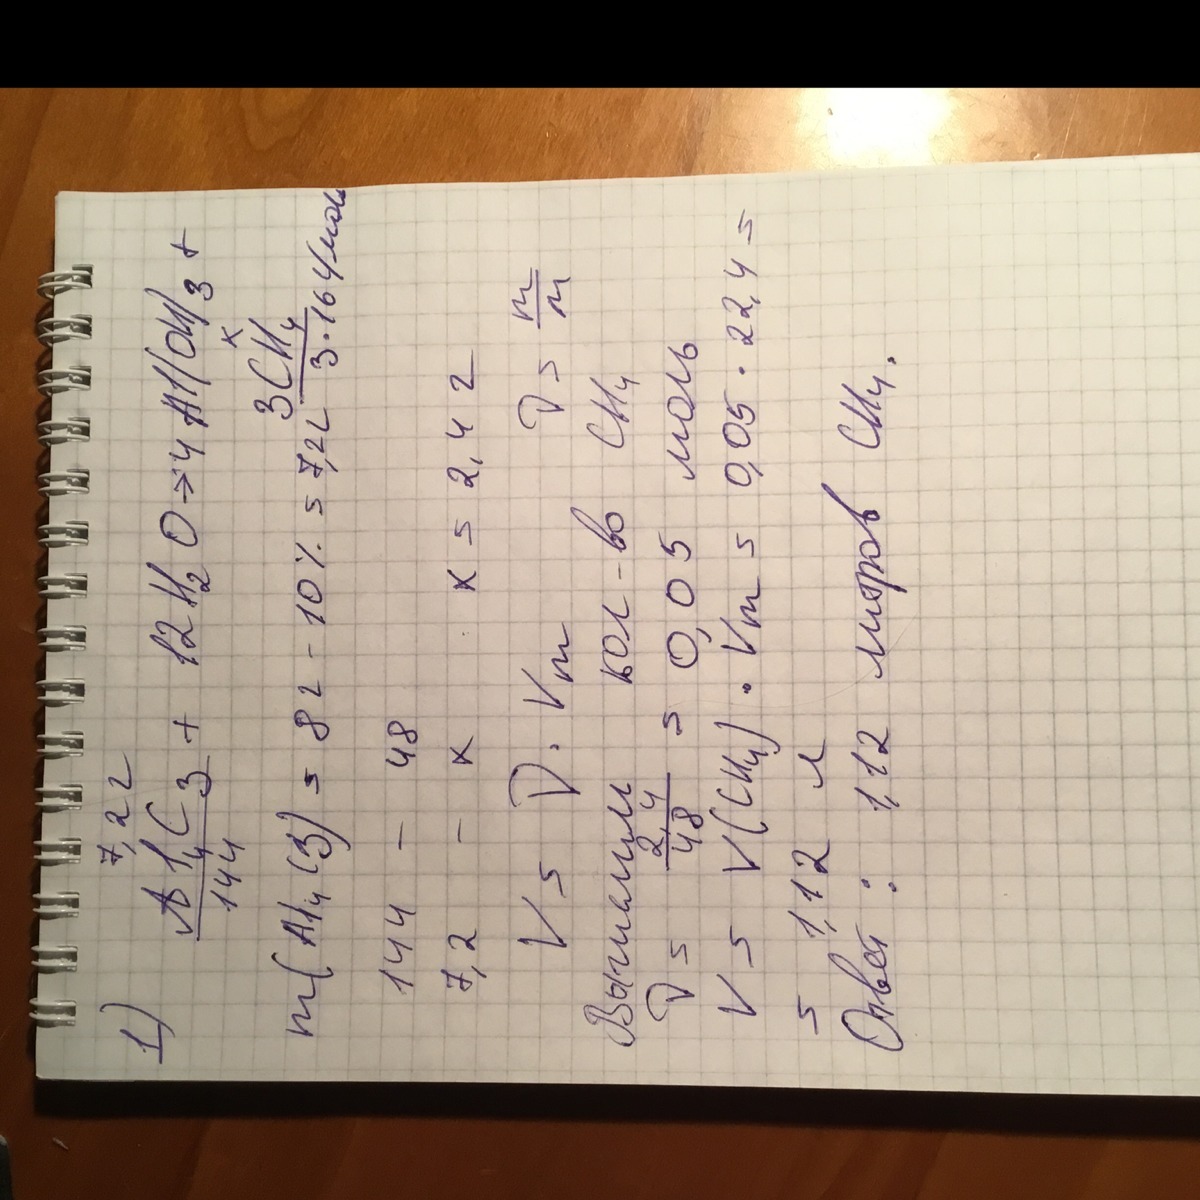 1)
7,2г x
Al₄C₃ + 12H₂O → 4Al(OH)₃ +
144
3CH₄
3·16г/моль
m(Al₄C3) = 8г - 10% = 7,2г
144 - 48
7,2 - x x = 2,4г
V = ν · Vm ν = m/m
Вычислим кол-во CH₄
ν = 2,4/48 = 0,05 моль
V = V(CH₄) · Vm = 0,05 · 22,4 =
= 1,12 л
Ответ: 1,12 литров CH₄.